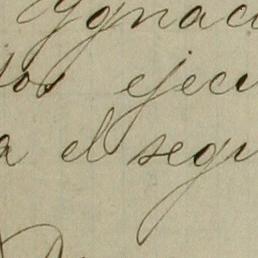 Ygnaci
los ejecu
a el segu